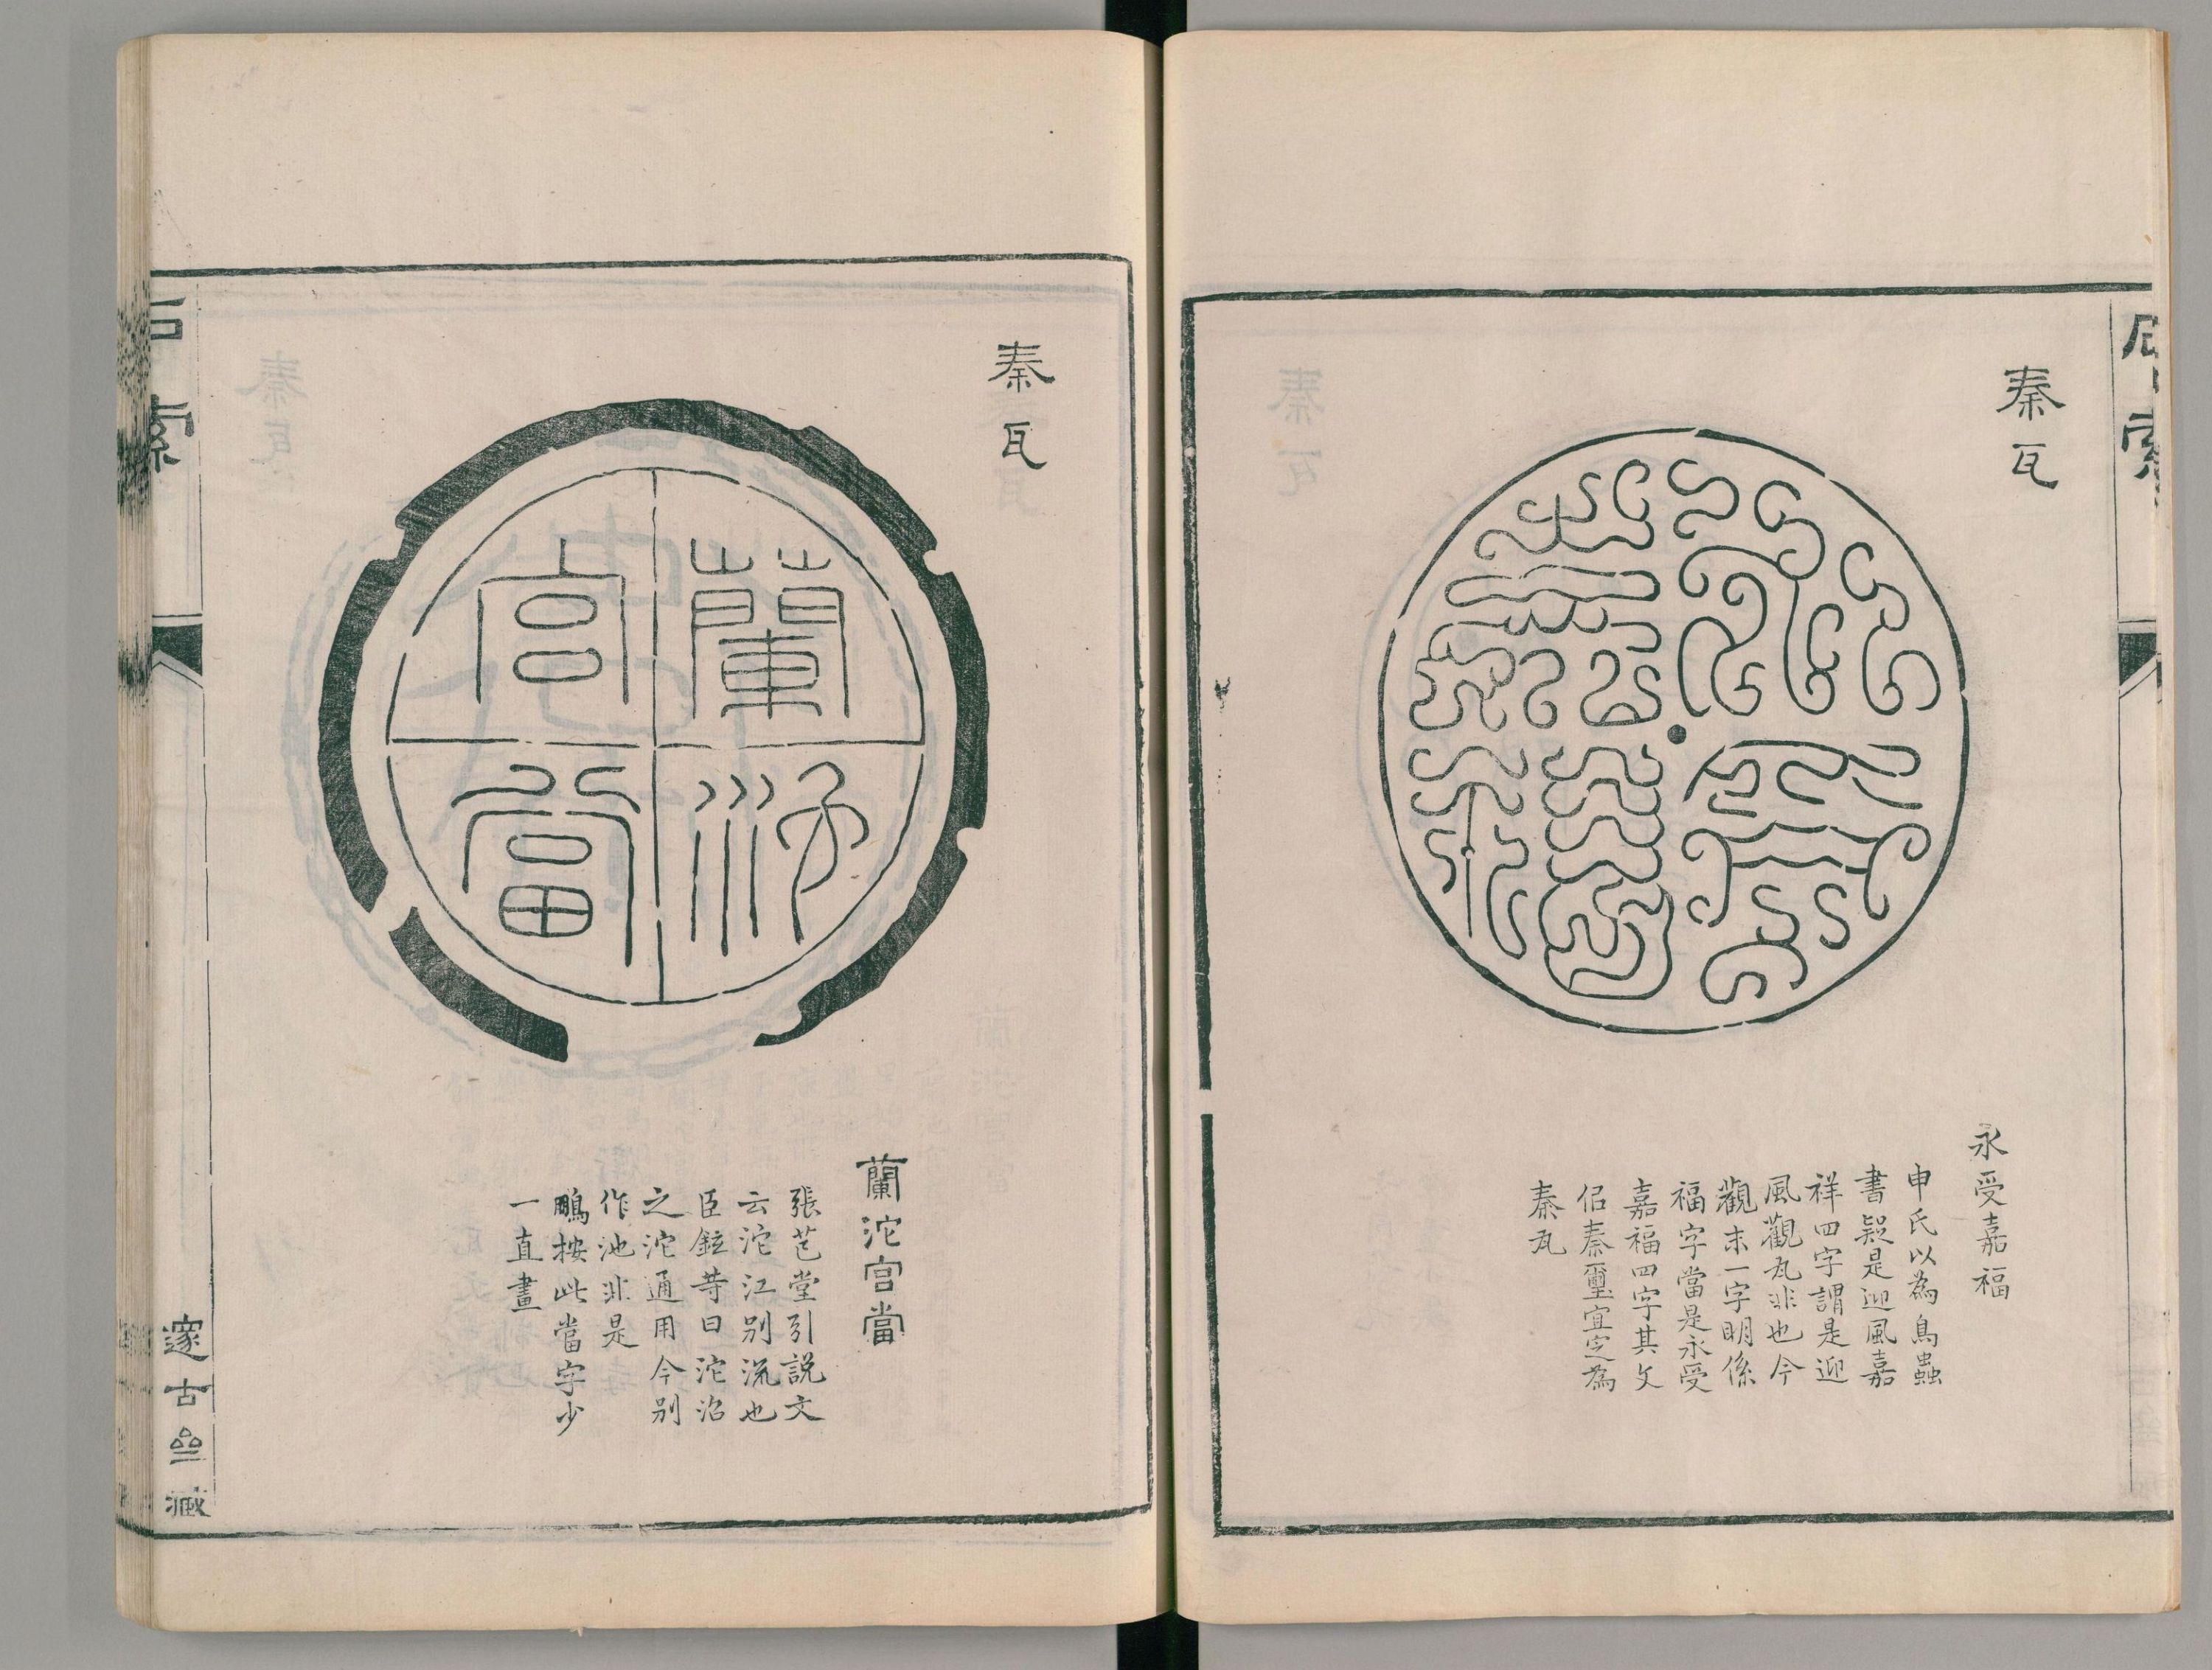 秦瓦
永受嘉福
申氏以為鳥蟲
書疑是迎風嘉
祥四字謂是迎
風觀瓦非也今
觀末一字明係
福字當是永受
嘉福四字其文
侶秦璽宜定為
秦瓦
秦瓦
蘭沱宮當
蘭沱宮當
張芑堂引説文
云沱江别流也
臣鉉等曰沱沼
之沱通用今别
作池非是
鵬按此當字少
一直畫
石索
邃古齋藏